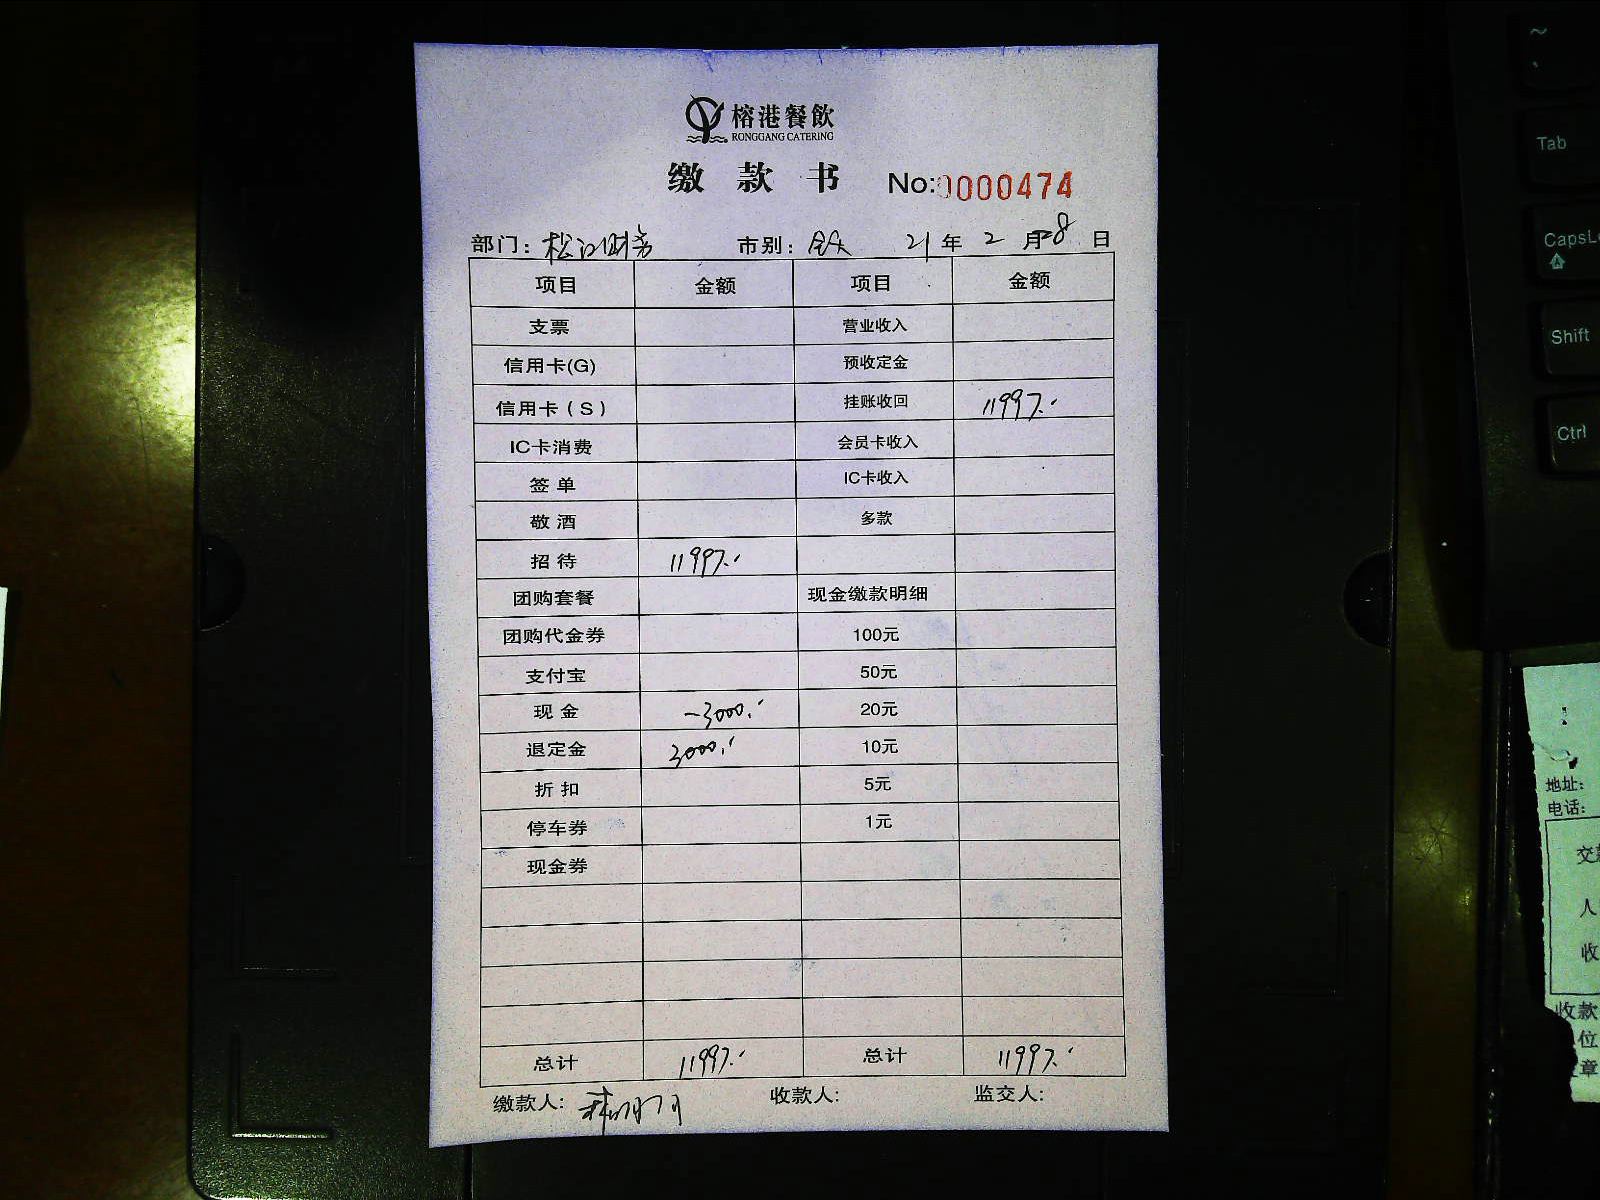 榕港餐飲
RONGGANG CATERING
缴款书 No:0000474
部门：松江财务 市别：全天 21年2月28日
项目 金额 项目 金额
支票 营业收入
信用卡(G) 预收定金
信用卡（S） 挂账收回 11997.-
IC卡消费 会员卡收入
签单 IC卡收入
敬酒 多款
招待 11997.-
团购套餐 现金缴款明细
团购代金券 100元
支付宝 50元
现金 -3000.- 20元
退定金 3000.- 10元
折扣 5元
停车券 1元
现金券
总计 11997.- 总计 11997.-
缴款人: 收款人: 监交人:
~
Tab
Shift
Ctrl
地址:
电话:
人
收
收款
位
章